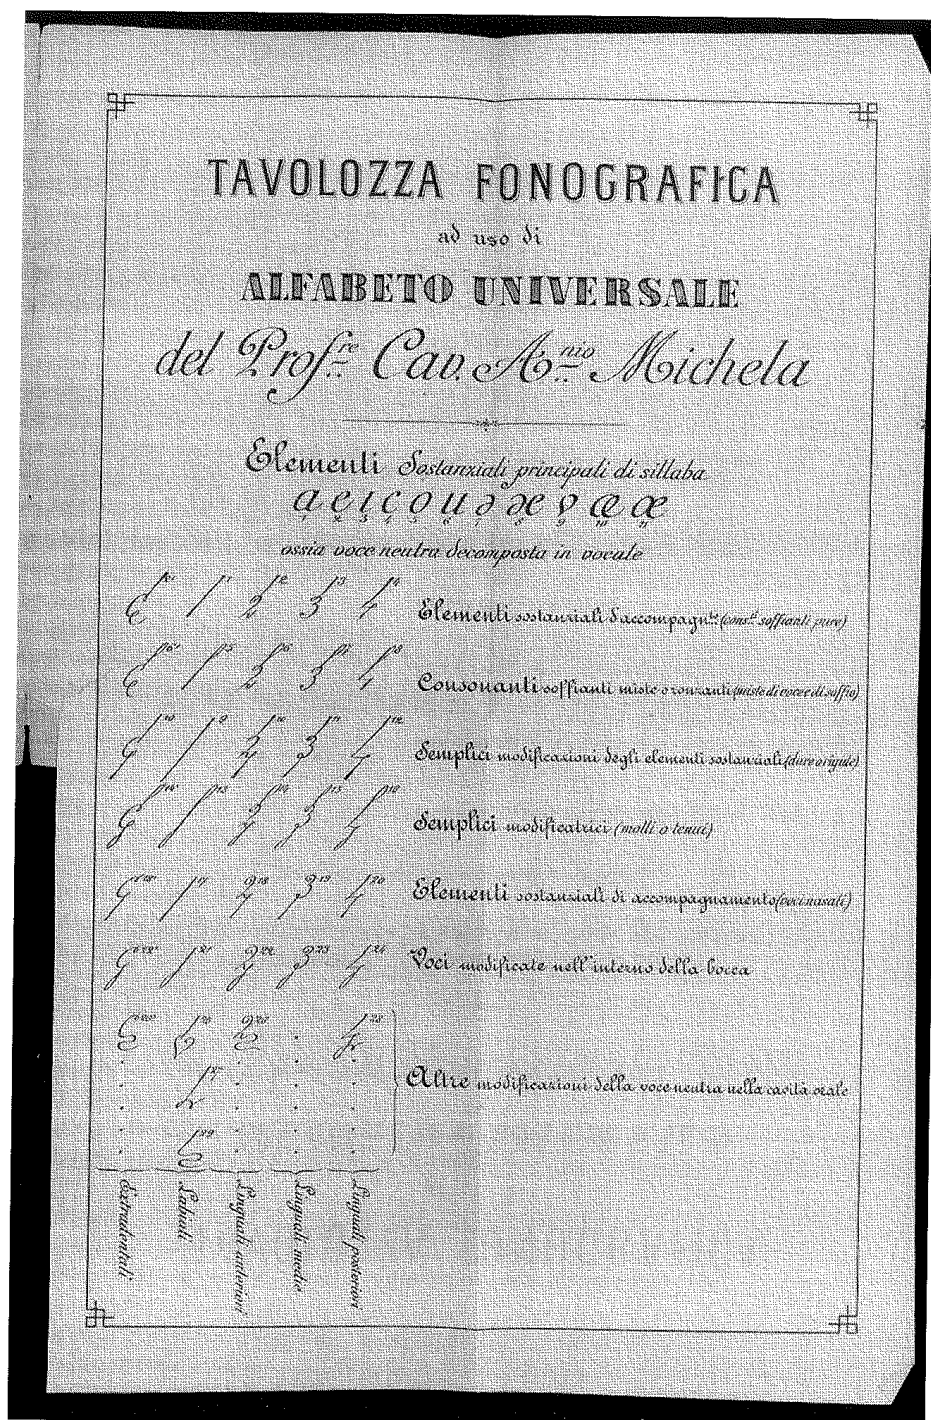 TAVOLOZZA FONOGRAFICA
ad uso di
ALFABETO UNIVERSALE
del Prof.re Cav. A.nio Michela
Elementi Sostanziali principali di sillaba
a e ı c o u
1 2 3 4 5 6 7 8 9 10 11
ossia voce neutra decomposta in vocale
1 2 3 4
Elementi sostanziali d'accompagn.to (cons.ti soffianti pure)
5 6 7 8
Consonanti soffianti miste o ronzanti (miste di voce e di soffio)
9 10 11 12
Semplici modificazioni degli elementi sostanziali (dure o rigide)
13 14 15 16
Semplici modificatrici (molli o tenui)
17 18 19 20
Elementi sostanziali di accompagnamento (voci nasali)
21 22 23 24
Voci modificate nell'interno della bocca
26 25 28
27
Altre modificazioni della voce neutra nella cavità orale
29
Extradentali
Labiali
Linguali anteriori
Linguali medie
Linguali posteriori